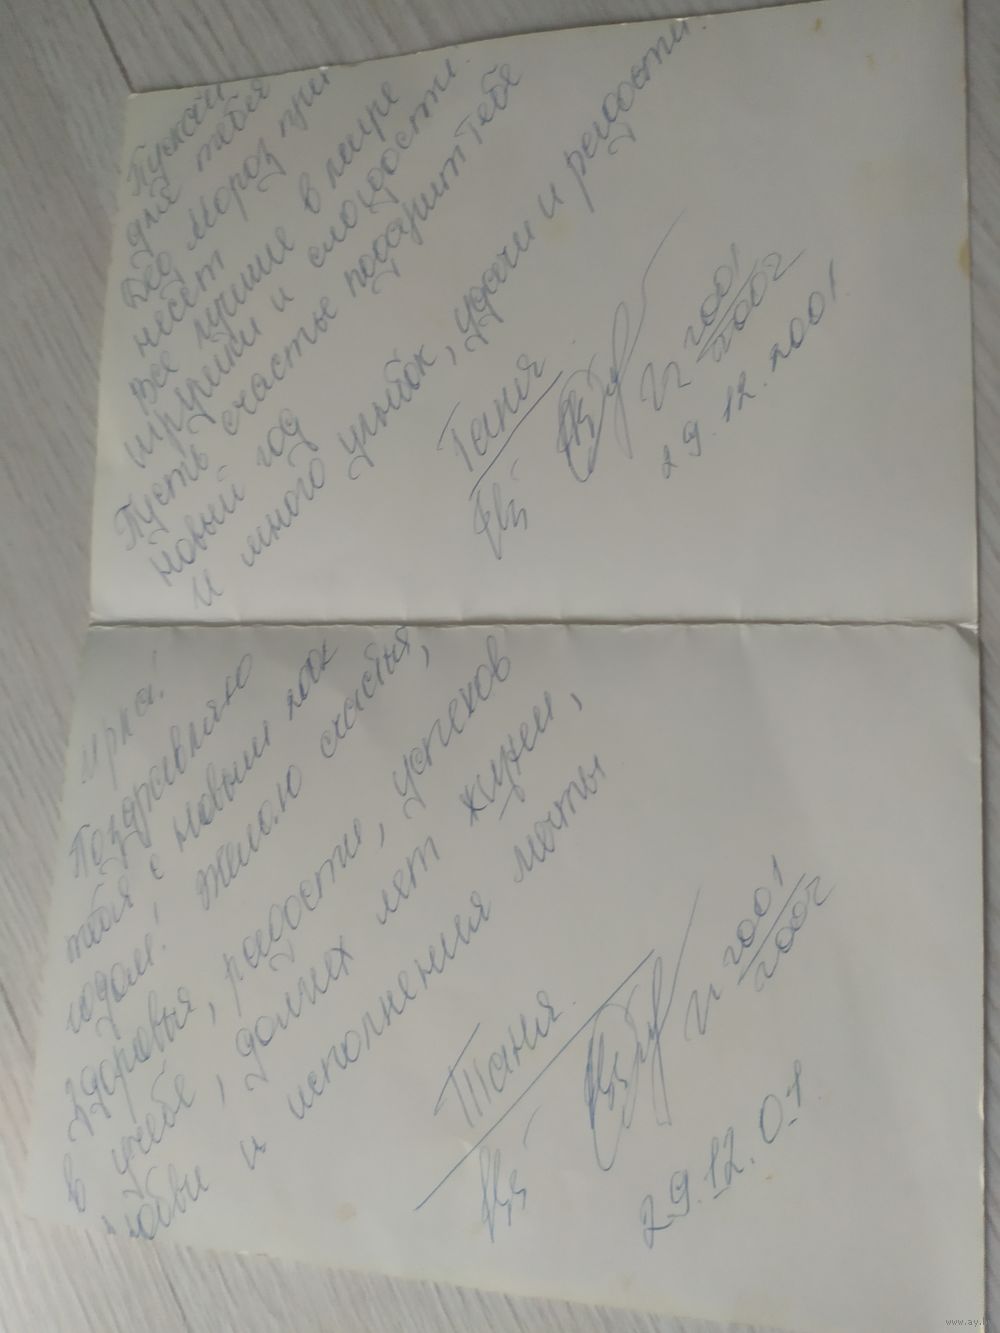 Пускай
для тебя
Дед мороз при
несёт
все лучшие в мире
игрушки и сладости.
Пусть счастье подарит тебе
новый год
и много улыбок, удачи и радости.
Таня
2001
2002
29.12.2001
Ирка!
Поздравляю
тебя с новым
годом! Желаю счастья,
здоровья, радости, успехов
в учебе, долгих лет жизни,
любви и исполнения мечты
Таня
2001
2002
29.12.01.
www.ay.by